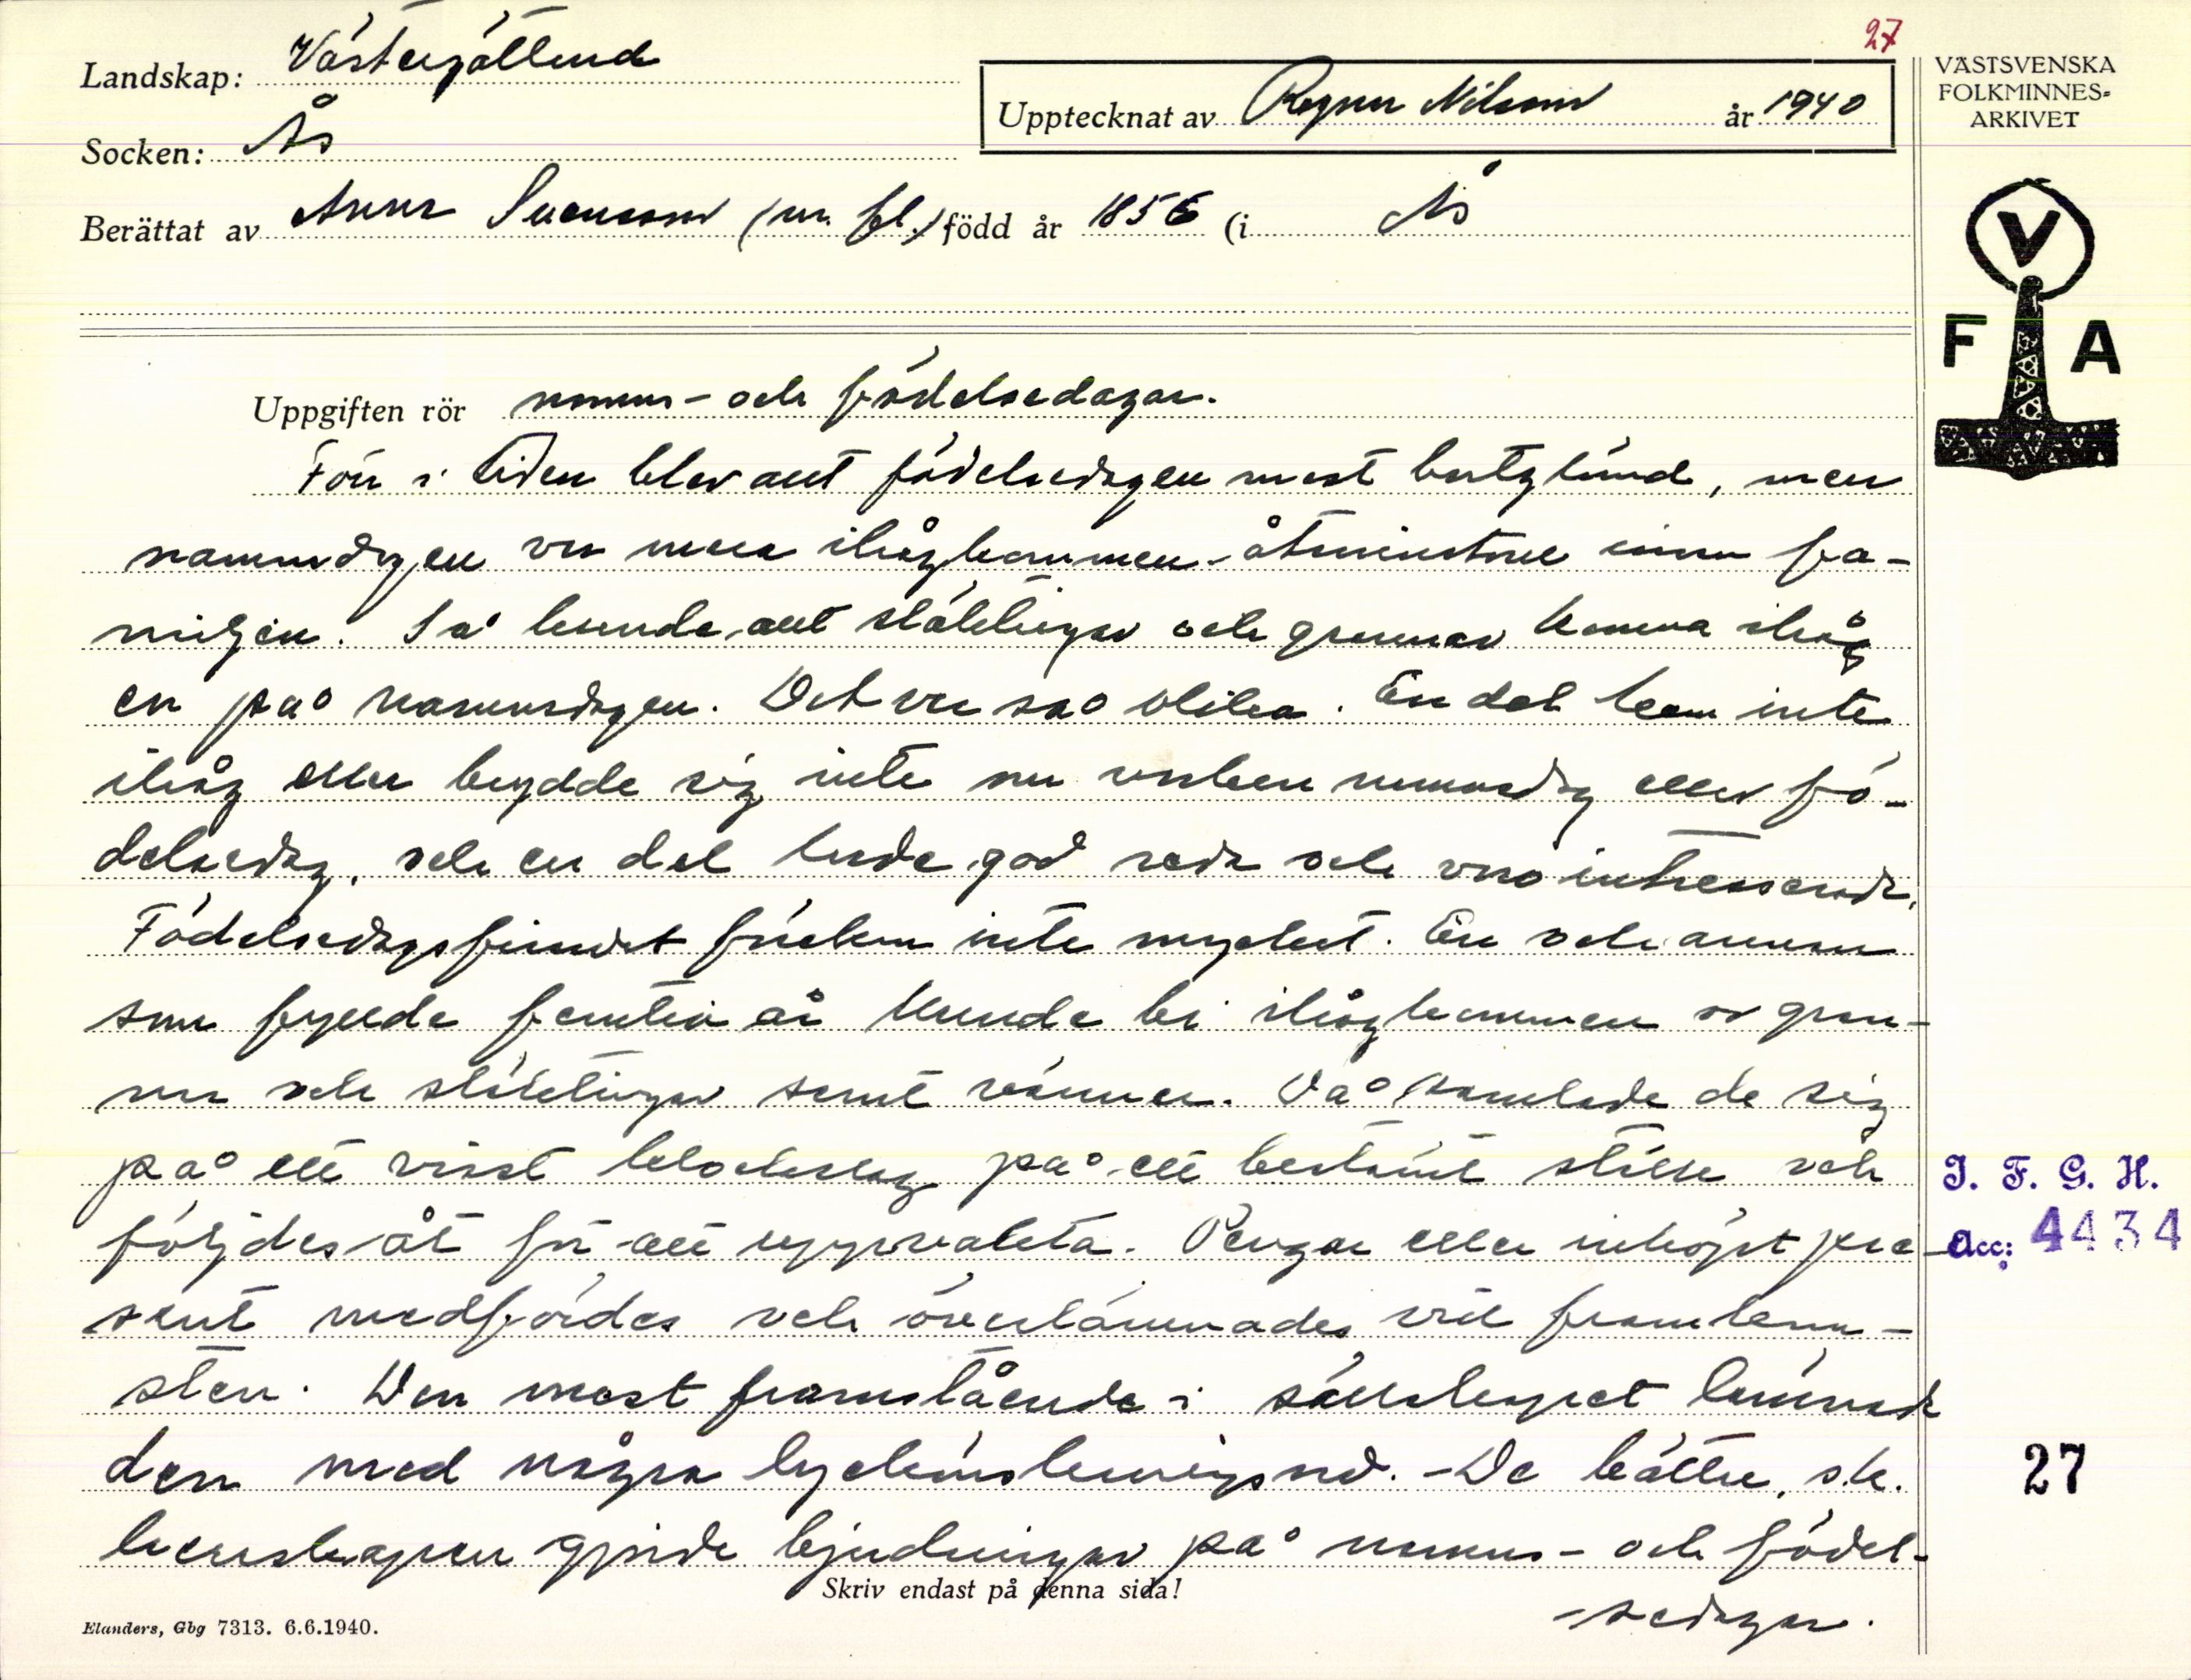 27
Landskap: Västergötland
Socken: Ås
Upptecknat av Ragnar Nilsson år 1940
VÄSTSVENSKA
FOLKMINNES-
ARKIVET
Berättat av Anna Svensson (m. fl.) född år 1856 (i Ås
V
F A
Uppgiften rör namns- och födelsedagar.
Förr i tiden blev allt födelsedagen mest bortglömd, men
namnsdagen var mera ihågkommen - åtminstone inom fa-
miljen. Så kunde allt släktingar och grannar komma ihåg
en på namnsdagen. Det var så olika. En del kom inte
ihåg eller brydde sig inte om varken namnsdag eller fö-
delsedag, och en del hade god reda och var så intresserade.
Födelsedagsfirandet förekom inte mycket. En och annan
som fyllde femtio år kunde bli ihågkommen av gran-
nar och släktingar samt vänner. Då samlade de sig
på ett visst klockslag på ett bestämt ställe och
följdes åt för att uppvakta. Pengar eller inköpt pre-
sent medfördes och överlämnades vid framkom-
sten. Den mest framstående i sällskapet lämnade
den med några lyckönskningsord. - De bättre, s.k.
herrskapen gjorde bjudningar på namns- och födel-
-sedagar.
J. F. G. H.
Acc: 4434
27
Skriv endast på denna sida!
Elanders, Gbg 7313. 6.6.1940.